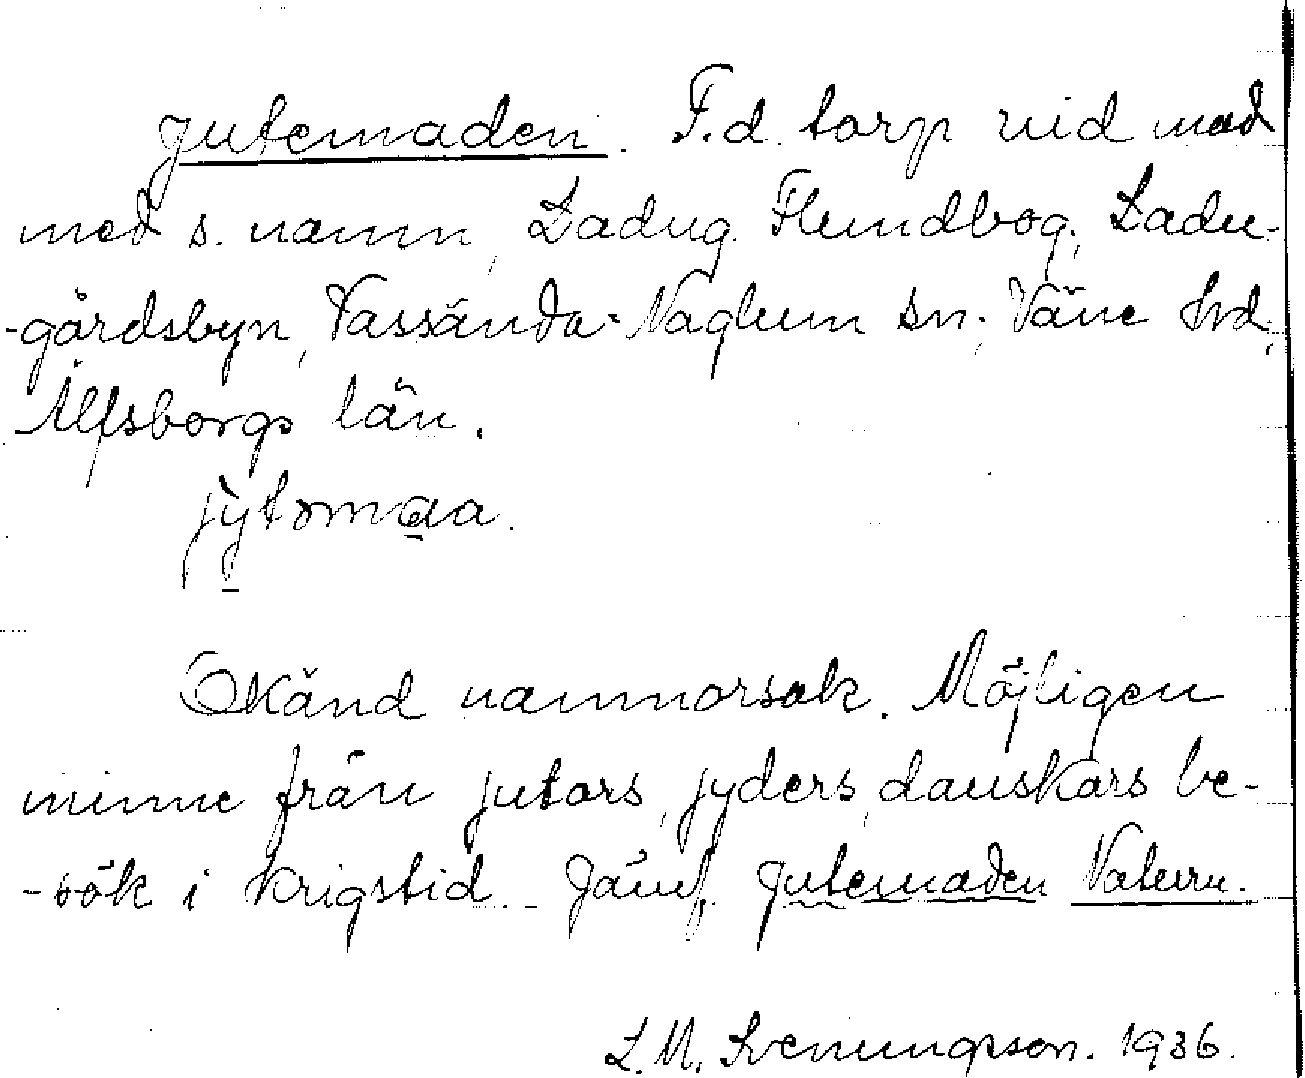 Jutemaden. F.d. torp vid mad
med s. namn, Ladug. Flundbog, Ladu-
-gårdsbyn, Vassända-Naglum sn, Väne hd,
Älfsborgs län.
jytomaa.
Okänd namnorsak. Möjligen
minne från jutars, jyders, danskars be-
-sök i krigstid. - Jämf. Jutemaden Naturn.
L.M. Svenungsson. 1936.